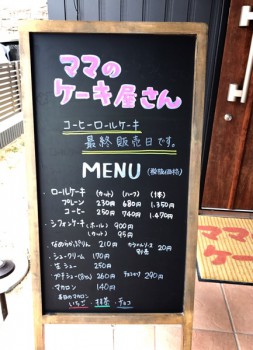 ママの
ケーキ屋さん
コーヒーロールケーキ
最終販売日です。
MENU (税抜価格)
・ロールケーキ (カット) (ハーフ) (1本)
プレーン 230円 680円 1,350円
コーヒー 250円 740円 1,470円
・シフォンケーキ (ホール) 900円
(カット) 95円
・なめらかぷりん 210円 カラメルソース 別売 20円
・シュークリーム 170円
・生シュー 250円
・プチシュー 260円 チョコがけ 290円
・マカロン 140円
本日のマカロン
いちご・抹茶・チョコ
ママ
ケー